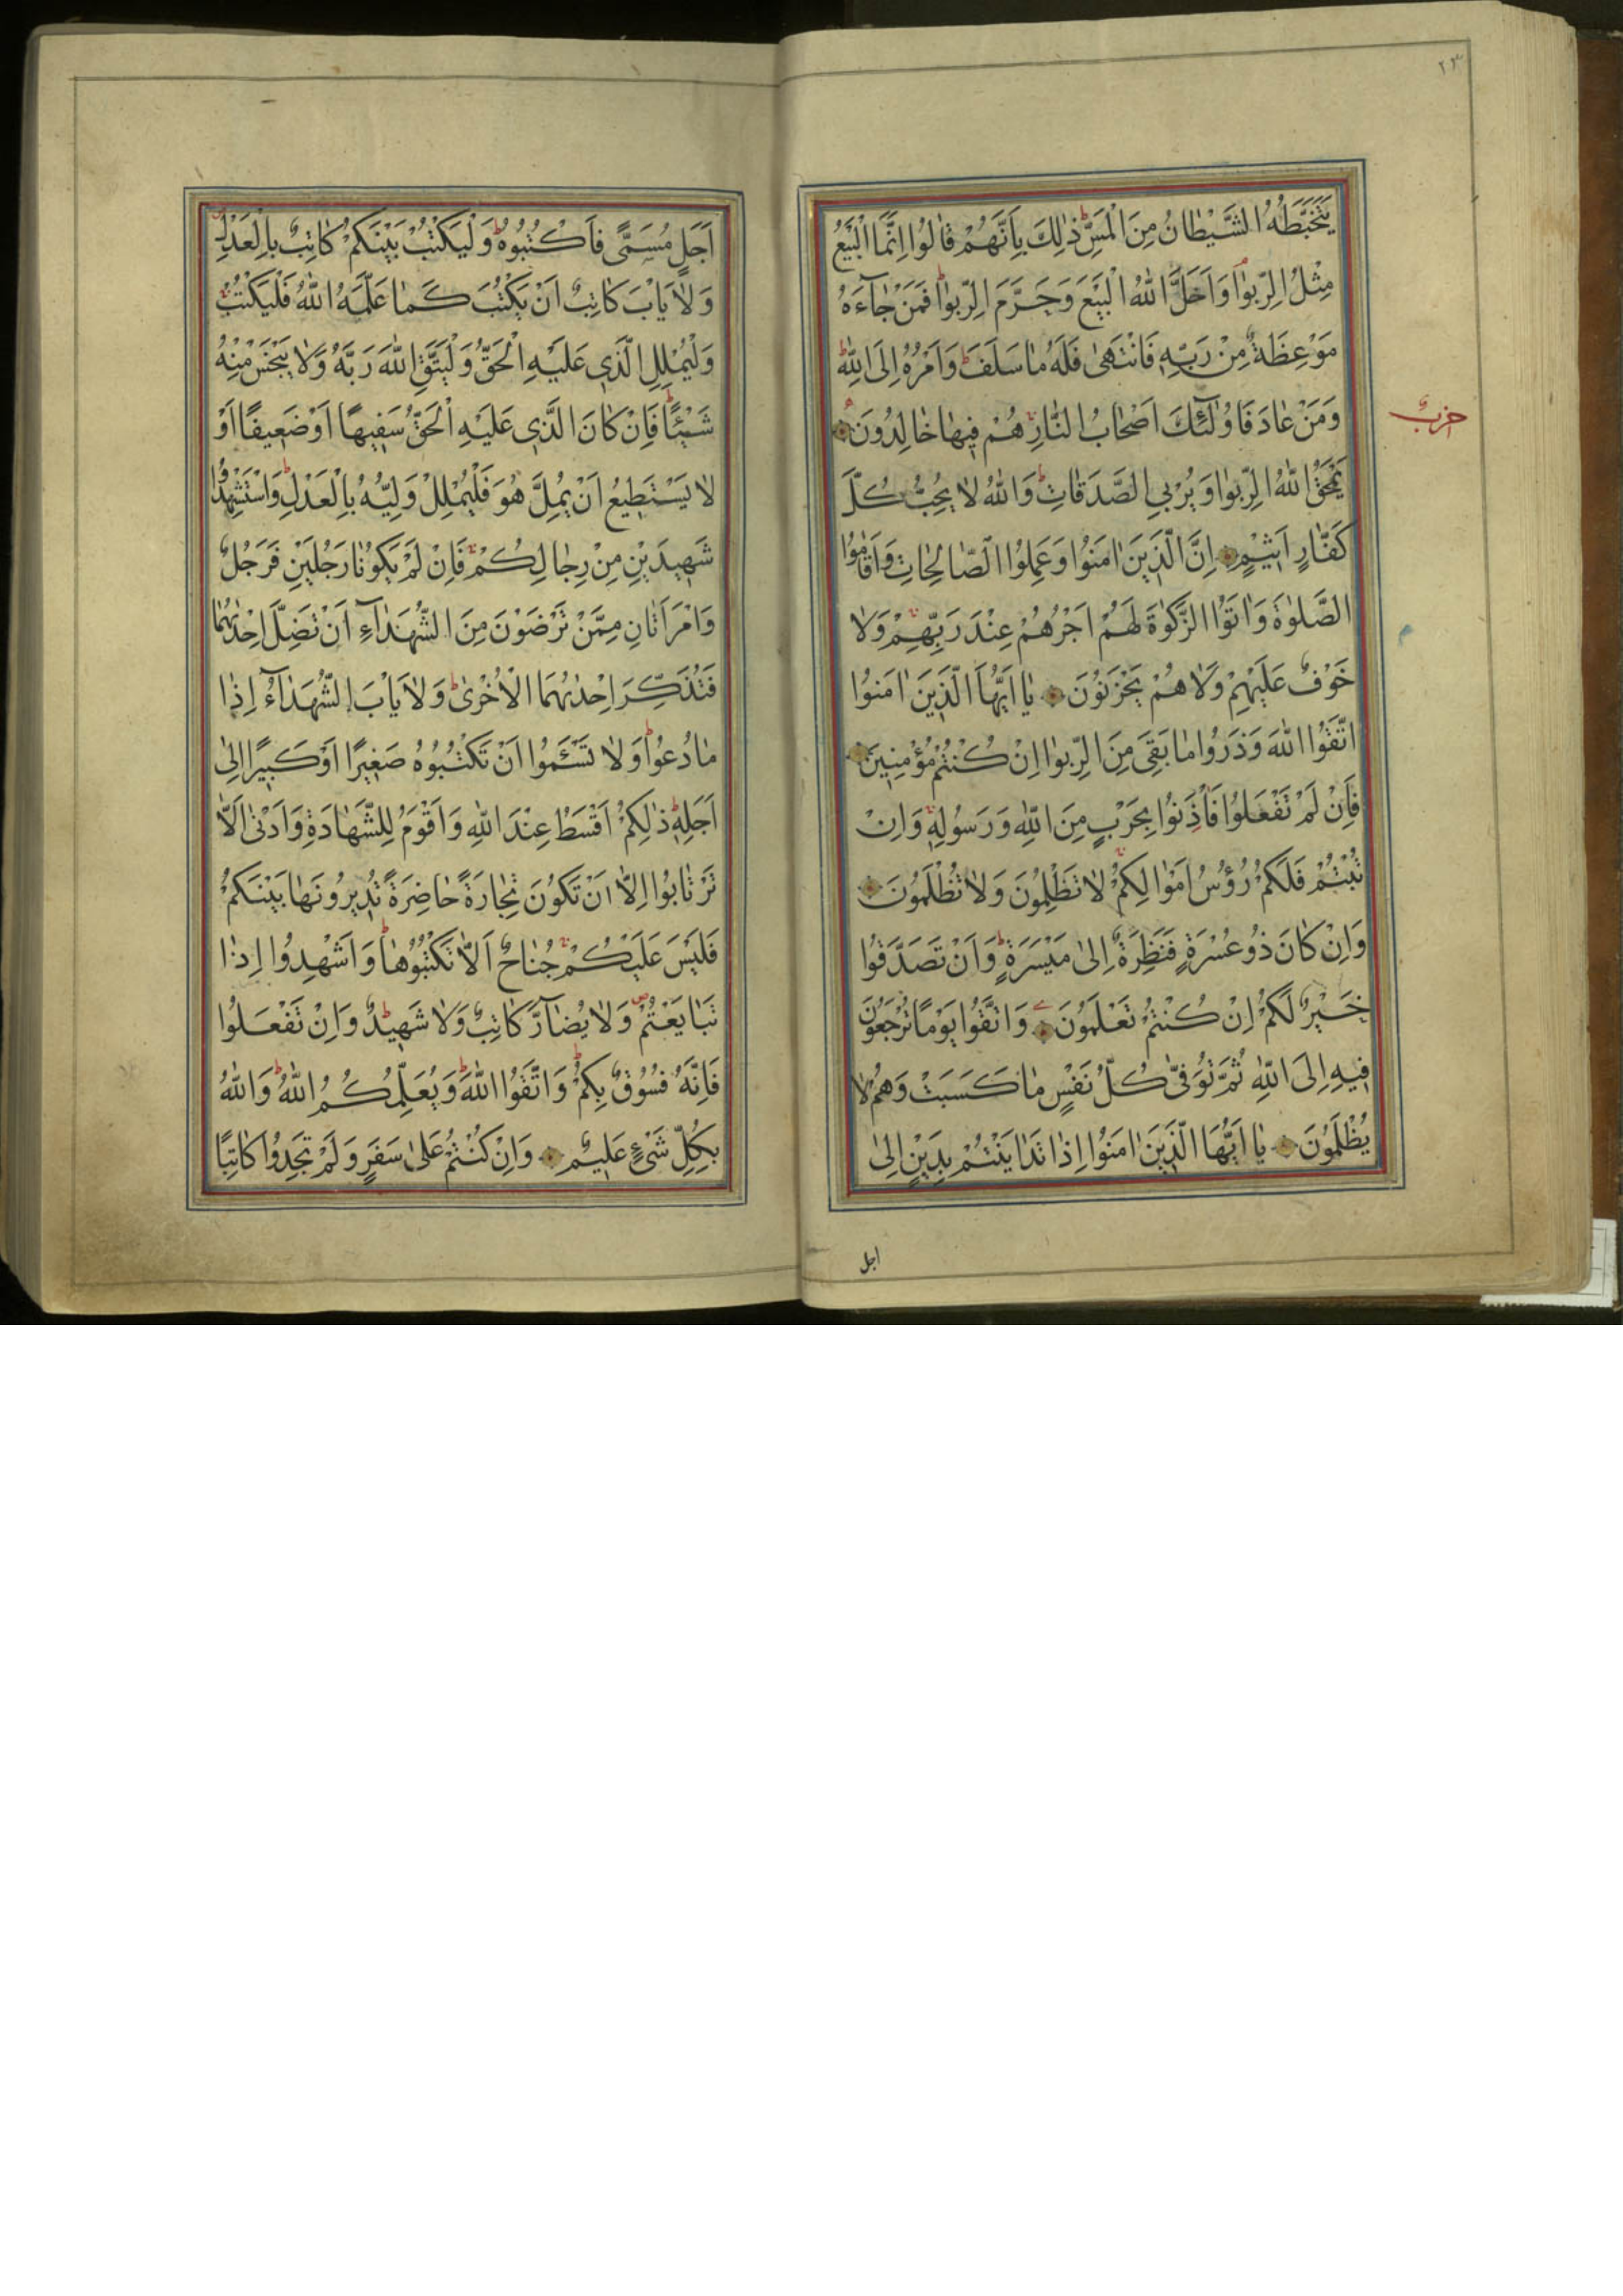 ٢٣
يَتَخَبَّطُهُ الشَّيْطَانُ مِنَ الْمَسِّ ذٰلِكَ بِاَنَّهُمْ قَالُوا اِنَّمَا الْبَيْعُ
مِثْلُ الرِّبٰوا وَاَحَلَّ اللّٰهُ الْبَيْعَ وَحَرَّمَ الرِّبٰوا فَمَنْ جَآءَهُ
مَوْعِظَةٌ مِنْ رَبِّهِ فَانْتَهٰى فَلَهُ مَا سَلَفَ وَاَمْرُهُ اِلَى اللّٰهِ
وَمَنْ عَادَ فَاُولٰٓئِكَ اَصْحَابُ النَّارِ هُمْ فِيهَا خَالِدُونَ
حزب
يَمْحَقُ اللّٰهُ الرِّبٰوا وَيُرْبِي الصَّدَقَاتِ وَاللّٰهُ لَا يُحِبُّ كُلَّ
كَفَّارٍ اَثِيمٍ اِنَّ الَّذِينَ اٰمَنُوا وَعَمِلُوا الصَّالِحَاتِ وَاَقَامُوا
الصَّلٰوةَ وَاٰتَوُا الزَّكٰوةَ لَهُمْ اَجْرُهُمْ عِنْدَ رَبِّهِمْ وَلَا
م
خَوْفٌ عَلَيْهِمْ وَلَا هُمْ يَحْزَنُونَ يَا اَيُّهَا الَّذِينَ اٰمَنُوا
اتَّقُوا اللّٰهَ وَذَرُوا مَا بَقِيَ مِنَ الرِّبٰوا اِنْ كُنْتُمْ مُؤْمِنِينَ
فَاِنْ لَمْ تَفْعَلُوا فَأْذَنُوا بِحَرْبٍ مِنَ اللّٰهِ وَرَسُولِهِ وَاِنْ
تُبْتُمْ فَلَكُمْ رُؤُسُ اَمْوَالِكُمْ لَا تَظْلِمُونَ وَلَا تُظْلَمُونَ
وَاِنْ كَانَ ذُو عُسْرَةٍ فَنَظِرَةٌ اِلٰى مَيْسَرَةٍ وَاَنْ تَصَدَّقُوا
خَيْرٌ لَكُمْ اِنْ كُنْتُمْ تَعْلَمُونَ وَاتَّقُوا يَوْمًا تُرْجَعُونَ
فِيهِ اِلَى اللّٰهِ ثُمَّ تُوَفّٰى كُلُّ نَفْسٍ مَا كَسَبَتْ وَهُمْ لَا
يُظْلَمُونَ يَا اَيُّهَا الَّذِينَ اٰمَنُوا اِذَا تَدَايَنْتُمْ بِدَيْنٍ اِلٰى
اجل
اَجَلٍ مُسَمًّى فَاكْتُبُوهُ وَلْيَكْتُبْ بَيْنَكُمْ كَاتِبٌ بِالْعَدْلِ
وَلَا يَأْبَ كَاتِبٌ اَنْ يَكْتُبَ كَمَا عَلَّمَهُ اللّٰهُ فَلْيَكْتُبْ
وَلْيُمْلِلِ الَّذِي عَلَيْهِ الْحَقُّ وَلْيَتَّقِ اللّٰهَ رَبَّهُ وَلَا يَبْخَسْ مِنْهُ
شَيْئًا فَاِنْ كَانَ الَّذِي عَلَيْهِ الْحَقُّ سَفِيهًا اَوْ ضَعِيفًا اَوْ
لَا يَسْتَطِيعُ اَنْ يُمِلَّ هُوَ فَلْيُمْلِلْ وَلِيُّهُ بِالْعَدْلِ وَاسْتَشْهِدُوا
شَهِيدَيْنِ مِنْ رِجَالِكُمْ فَاِنْ لَمْ يَكُونَا رَجُلَيْنِ فَرَجُلٌ
وَامْرَاَتَانِ مِمَّنْ تَرْضَوْنَ مِنَ الشُّهَدَآءِ اَنْ تَضِلَّ اِحْدٰيهُمَا
فَتُذَكِّرَ اِحْدٰيهُمَا الْاُخْرٰى وَلَا يَأْبَ الشُّهَدَآءُ اِذَا
مَا دُعُوا وَلَا تَسْئَمُوا اَنْ تَكْتُبُوهُ صَغِيرًا اَوْ كَبِيرًا اِلٰى
اَجَلِهِ ذٰلِكُمْ اَقْسَطُ عِنْدَ اللّٰهِ وَاَقْوَمُ لِلشَّهَادَةِ وَاَدْنٰى اَلَّا
تَرْتَابُوا اِلَّا اَنْ تَكُونَ تِجَارَةً حَاضِرَةً تُدِيرُونَهَا بَيْنَكُمْ
فَلَيْسَ عَلَيْكُمْ جُنَاحٌ اَلَّا تَكْتُبُوهَا وَاَشْهِدُوا اِذَا
تَبَايَعْتُمْ وَلَا يُضَآرَّ كَاتِبٌ وَلَا شَهِيدٌ وَاِنْ تَفْعَلُوا
فَاِنَّهُ فُسُوقٌ بِكُمْ وَاتَّقُوا اللّٰهَ وَيُعَلِّمُكُمُ اللّٰهُ وَاللّٰهُ
بِكُلِّ شَيْءٍ عَلِيمٌ وَاِنْ كُنْتُمْ عَلٰى سَفَرٍ وَلَمْ تَجِدُوا كَاتِبًا